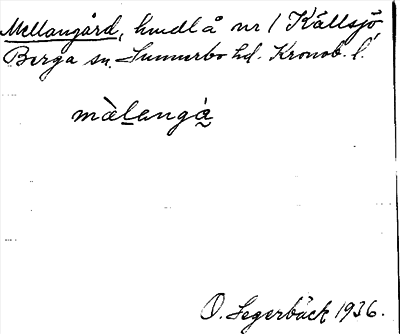 Mellangård, hmdl å nr 1 Källsjö,
Berga sn. Sunnerbo hd. Kronob. l.
màlangå̀
O. Segerbäck 1936.